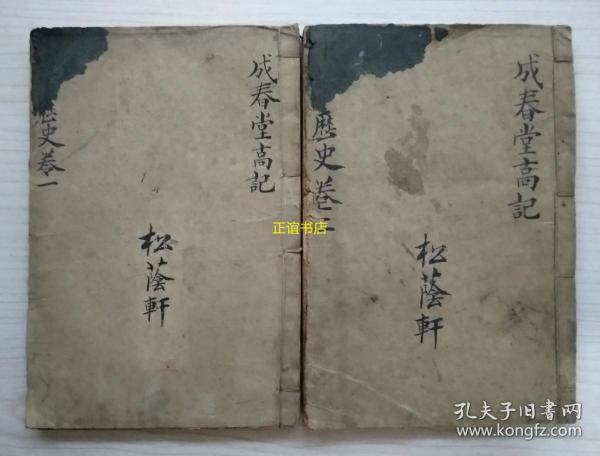 成春堂高記
松蔭軒
歷史卷一
成春堂高記
松蔭軒
歷史卷二
正谊书店
孔夫子旧书网
www.kongfz.com